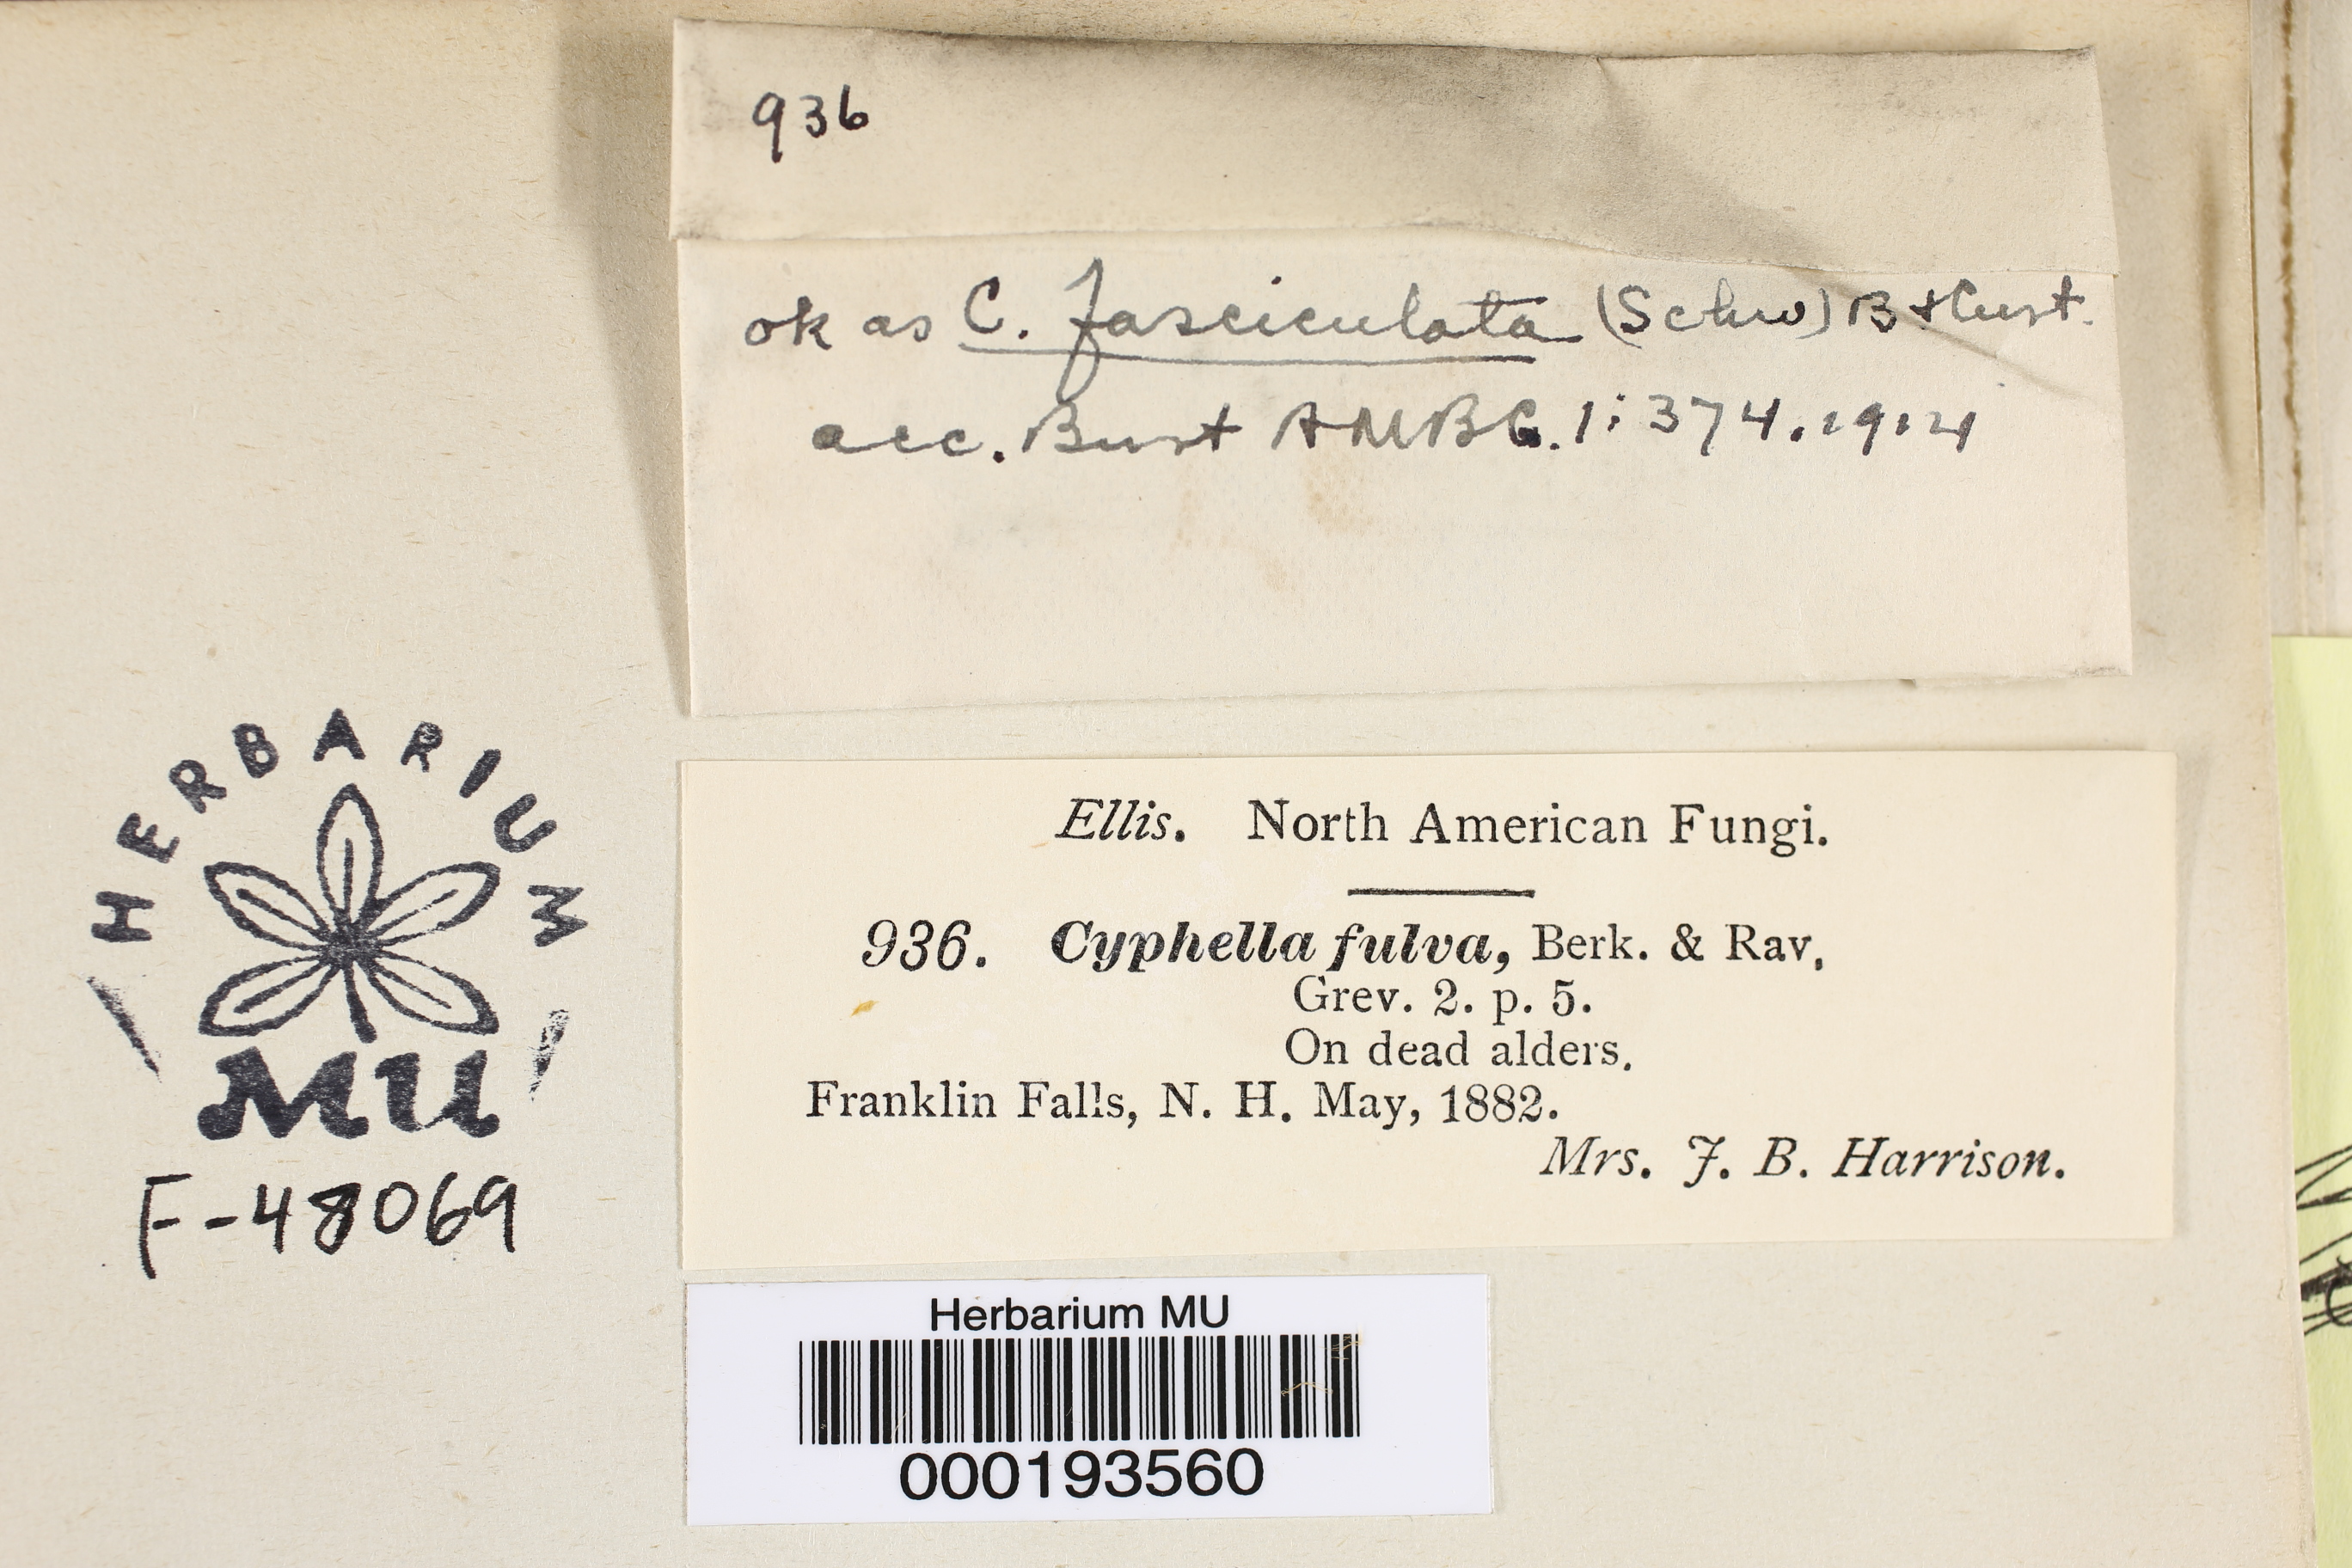 936
ok as C. fasciculata (Schw) B + Curt.
acc. Burt AMBG. 1: 374. 1914
HERBARIUM
MU
F-48069
Ellis. North American Fungi.
936. Cyphella fulva, Berk. & Rav.
Grev. 2. p. 5.
On dead alders.
Franklin Falls, N. H. May, 1882.
Mrs. J. B. Harrison.
Herbarium MU
000193560